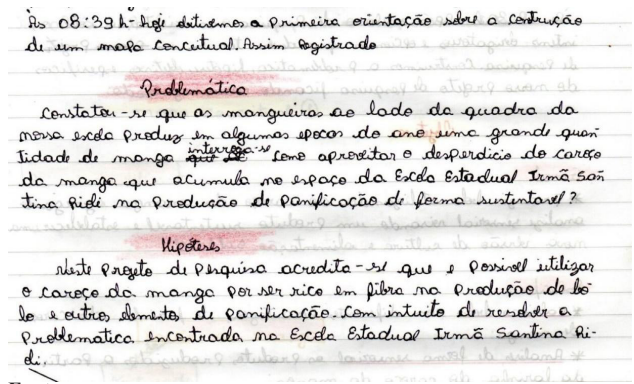 As 08:39 h - hoje obtivemos a primeira orientação sobre a construção
de um mapa conceitual. Assim registrado
Problemática
Constatou-se que as mangueiras ao lado da quadra da
nossa escola Produz em algumas epocas do ano uma grande quan
tidade de manga interroga-se como aproveitar o desperdicio do caroço
da manga que acumula no espaço da Escola Estadual Irmã San
tina Rioli na Produção de Panificação de forma sustentavel?
Hipóteses
Neste Projeto de Pesquisa acredita-se que e Possivel utilizar
o caroço da manga Por ser rico em fibra na Produção de bo
lo e outros elementos de Panificação. Com intuito de resolver a
Problematica encontrada na Escola Estadual Irmã Santina Ri-
oli,